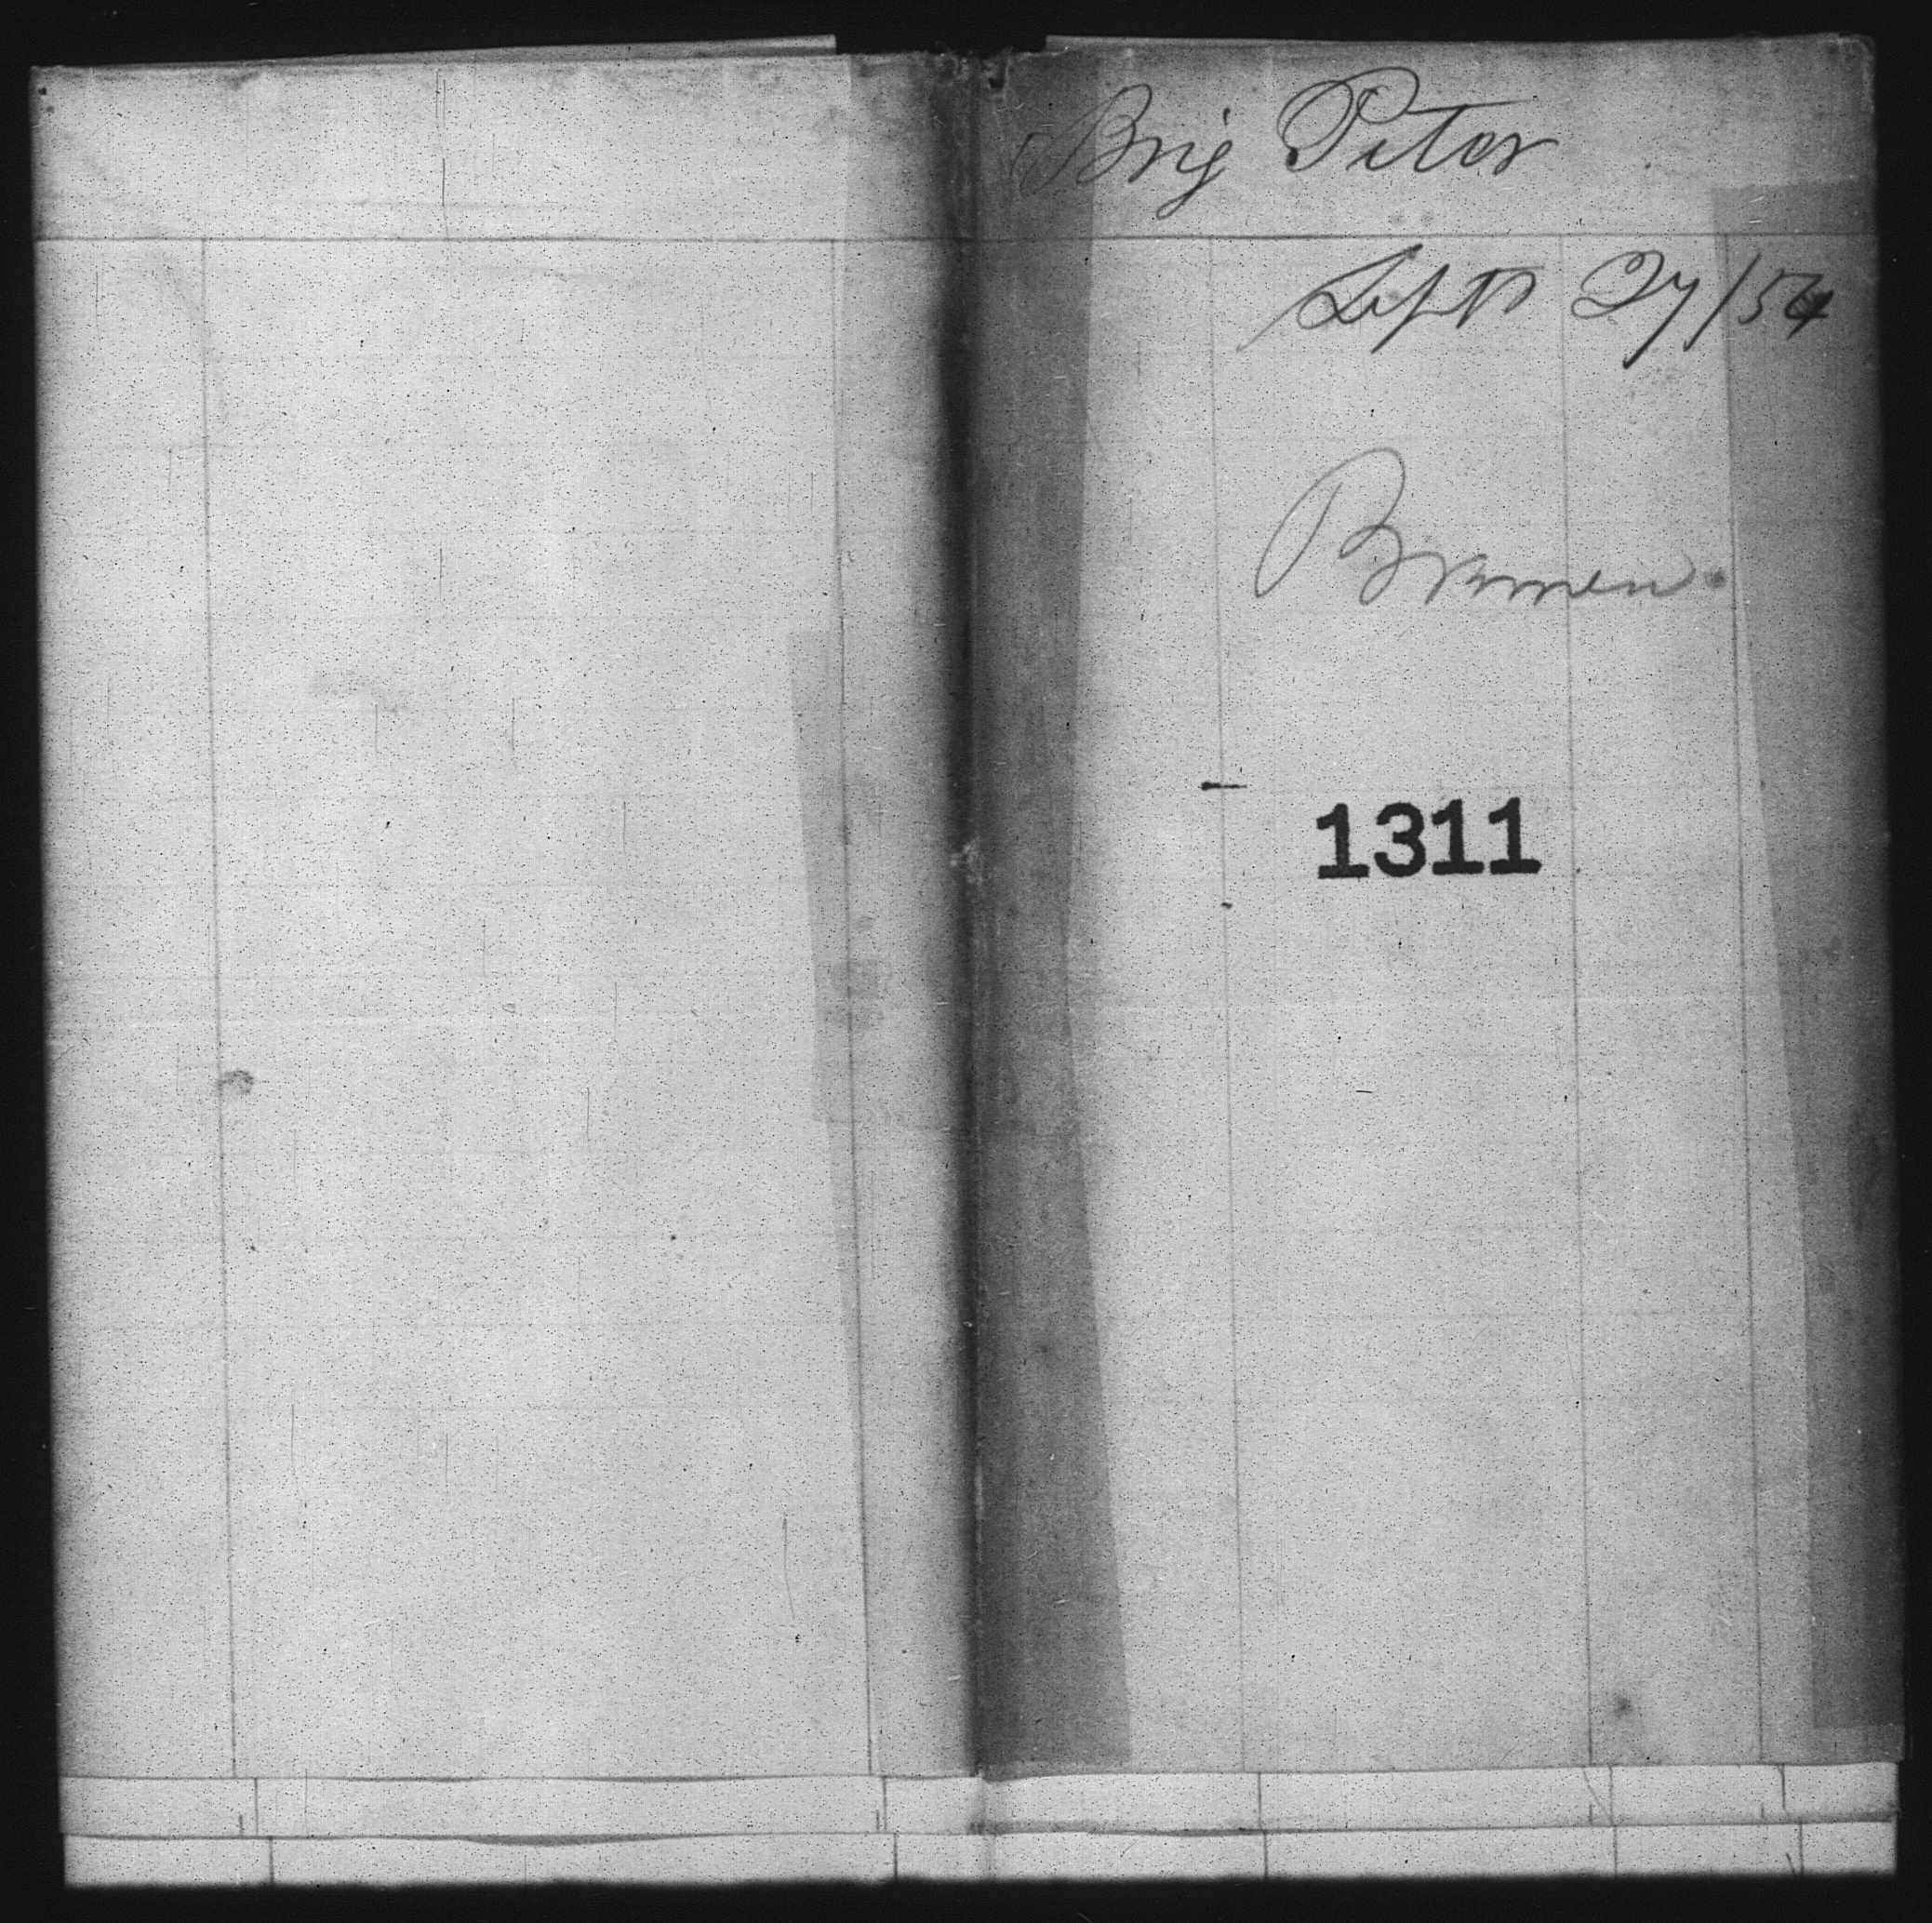 Brig Peter
Sept 27/54
Bremen
1311